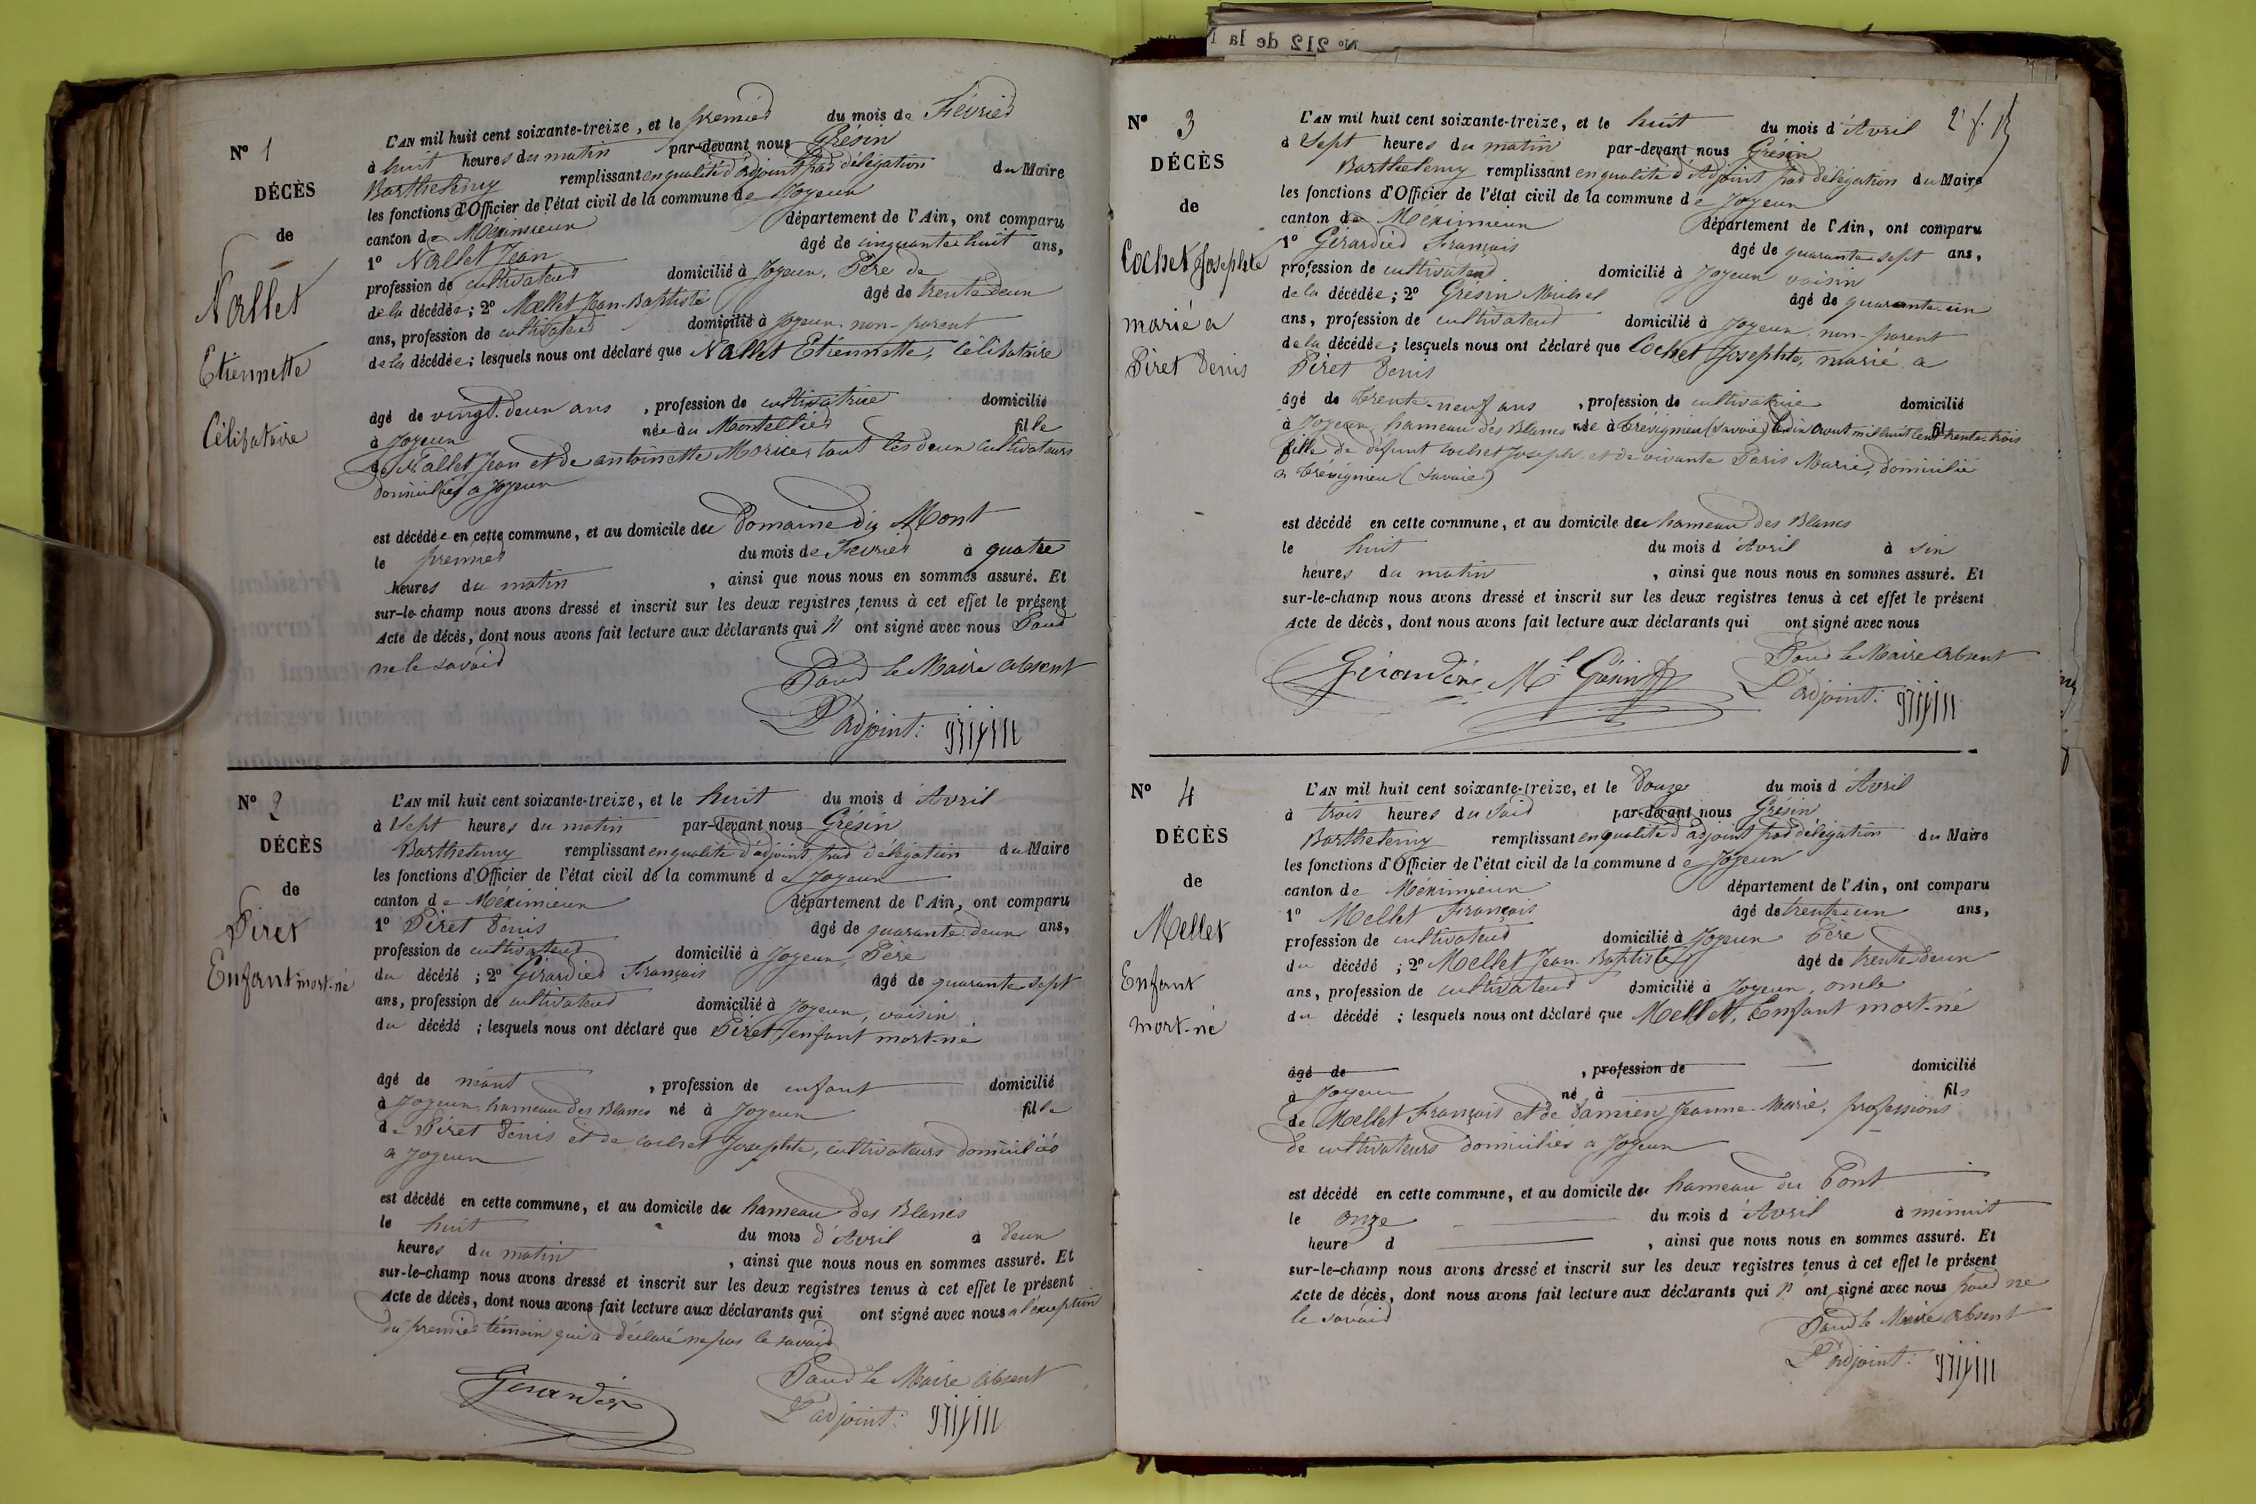 Nº 212 de la
Nº 1
DÉCÈS
de
Nallet
Etiennette
Célibataire
L'AN mil huit cent soixante-treize, et le premier du mois de Février
à huit heures du matin par-devant nous Grésin
Barthelemy remplissant en qualité d'adjoint par délégation du Maire
les fonctions d'Officier de l'état civil de la commune de Joyeux
canton de Méximieux département de l'Ain, ont comparu
1º Nallet Jean âgé de cinquante huit ans,
profession de cultivateur domicilié à Joyeux, Père de
de la décédée; 2º Mellet Jean-Baptiste âgé de trente deux
ans, profession de cultivateur domicilié à Joyeux, non-parent
de la décédée; lesquels nous ont déclaré que Nallet Etiennette, Célibataire
âgé de vingt-deux ans, profession de cultivatrice domicilié
à Joyeux née au Montellier fille
de Nallet Jean et de antoinette Morice, tout les deux cultivateurs
domiciliés a Joyeux
est décédée en cette commune, et au domicile du Domaine du Mont
le premier du mois de Février à quatre
heures du matin, ainsi que nous nous en sommes assuré. Et
sur-le-champ nous avons dressé et inscrit sur les deux registres tenus à cet effet le présent
Acte de décès, dont nous avons fait lecture aux déclarants qui n' ont signé avec nous Pour
ne le savoir
Pour le Maire absent
L'adjoint:
Nº 2
DÉCÈS
de
Piret
Enfant mort-né
L'AN mil huit cent soixante-treize, et le huit du mois d'Avril
à Sept heures du matin par-devant nous Grésin
Barthelemy remplissant en qualité d'adjoint par délégation du Maire
les fonctions d'Officier de l'état civil de la commune de Joyeux
canton de Méximieux département de l'Ain, ont comparu
1º Piret Denis âgé de quarante-deux ans,
profession de cultivateur domicilié à Joyeux, Père
du décédé; 2º Girardier François âgé de quarante-sept
ans, profession de cultivateur domicilié à Joyeux, voisin
du décédé; lesquels nous ont déclaré que Piret enfant mort-né
âgé de néant, profession de enfant domicilié
à Joyeux, hameau des Blancs né à Joyeux fille
de Piret Denis et de cochet Josephte, cultivateurs domiciliés
a Joyeux
est décédé en cette commune, et au domicile du hameau des Blancs
le huit du mois d'Avril à deux
heures du matin, ainsi que nous nous en sommes assuré. Et
sur-le-champ nous avons dressé et inscrit sur les deux registres tenus à cet effet le présent
Acte de décès, dont nous avons fait lecture aux déclarants qui ont signé avec nous a l'exception
du premier témoin qui a déclaré ne pas le savoir
Girardier
Pour le Maire absent
L'adjoint:
2e f.
Nº 3
DÉCÈS
de
Cochet Josephte
marié a
Piret Denis
L'AN mil huit cent soixante-treize, et le huit du mois d'Avril
à Sept heures du matin par-devant nous Grésin
Barthelemy remplissant en qualité d'Adjoint par délégation du Maire
les fonctions d'Officier de l'état civil de la commune de Joyeux
canton de Méximieux département de l'Ain, ont comparu
1º Girardier François âgé de quarante-sept ans,
profession de cultivateur domicilié à Joyeux voisin
de la décédée; 2º Grésin Michel âgé de quarante-un
ans, profession de cultivateur domicilié à Joyeux, non-parent
de la décédée; lesquels nous ont déclaré que Cochet Josephte, marié a
Piret Denis
âgé de trente-neuf ans, profession de cultivatrice domicilié
à Joyeux, hameau des Blancs née à Trévignieu (Savoie) le dix aout mil huit cent trente-trois
fille de défunt cochet Joseph et de vivante Paris Marie, domicilié
a Trévignieu (Savoie)
est décédé en cette commune, et au domicile du hameau des Blancs
le huit du mois d'Avril à six
heures du matin, ainsi que nous nous en sommes assuré. Et
sur-le-champ nous avons dressé et inscrit sur les deux registres tenus à cet effet le présent
Acte de décès, dont nous avons fait lecture aux déclarants qui ont signé avec nous
Girardier Mel Grésin
Pour le Maire absent
L'adjoint:
Nº 4
DÉCÈS
de
Mellet
Enfant
mort-né
L'AN mil huit cent soixante-treize, et le Douze du mois d'Avril
à trois heures du Soir par-devant nous Grésin
Barthelemy remplissant en qualité d'adjoint par délégation du Maire
les fonctions d'Officier de l'état civil de la commune de Joyeux
canton de Méximieux département de l'Ain, ont comparu
1º Mellet François âgé de trente-un ans,
profession de cultivateur domicilié à Joyeux Père
du décédé; 2º Mellet Jean-Baptiste âgé de trente deux
ans, profession de cultivateur domicilié à Joyeux, oncle
du décédé; lesquels nous ont déclaré que Mellet, Enfant mort-né
âgé de, profession de domicilié
à Joyeux né à fils
de Mellet François et de Damien Jeanne-Marie, professions
de cultivateurs domiciliés a Joyeux
est décédé en cette commune, et au domicile du hameau du Pont
le onze du mois d'Avril à minuit
heure d, ainsi que nous nous en sommes assuré. Et
sur-le-champ nous avons dressé et inscrit sur les deux registres tenus à cet effet le présent
Acte de décès, dont nous avons fait lecture aux déclarants qui n' ont signé avec nous pour ne
le savoir
Pour le Maire absent
L'adjoint: